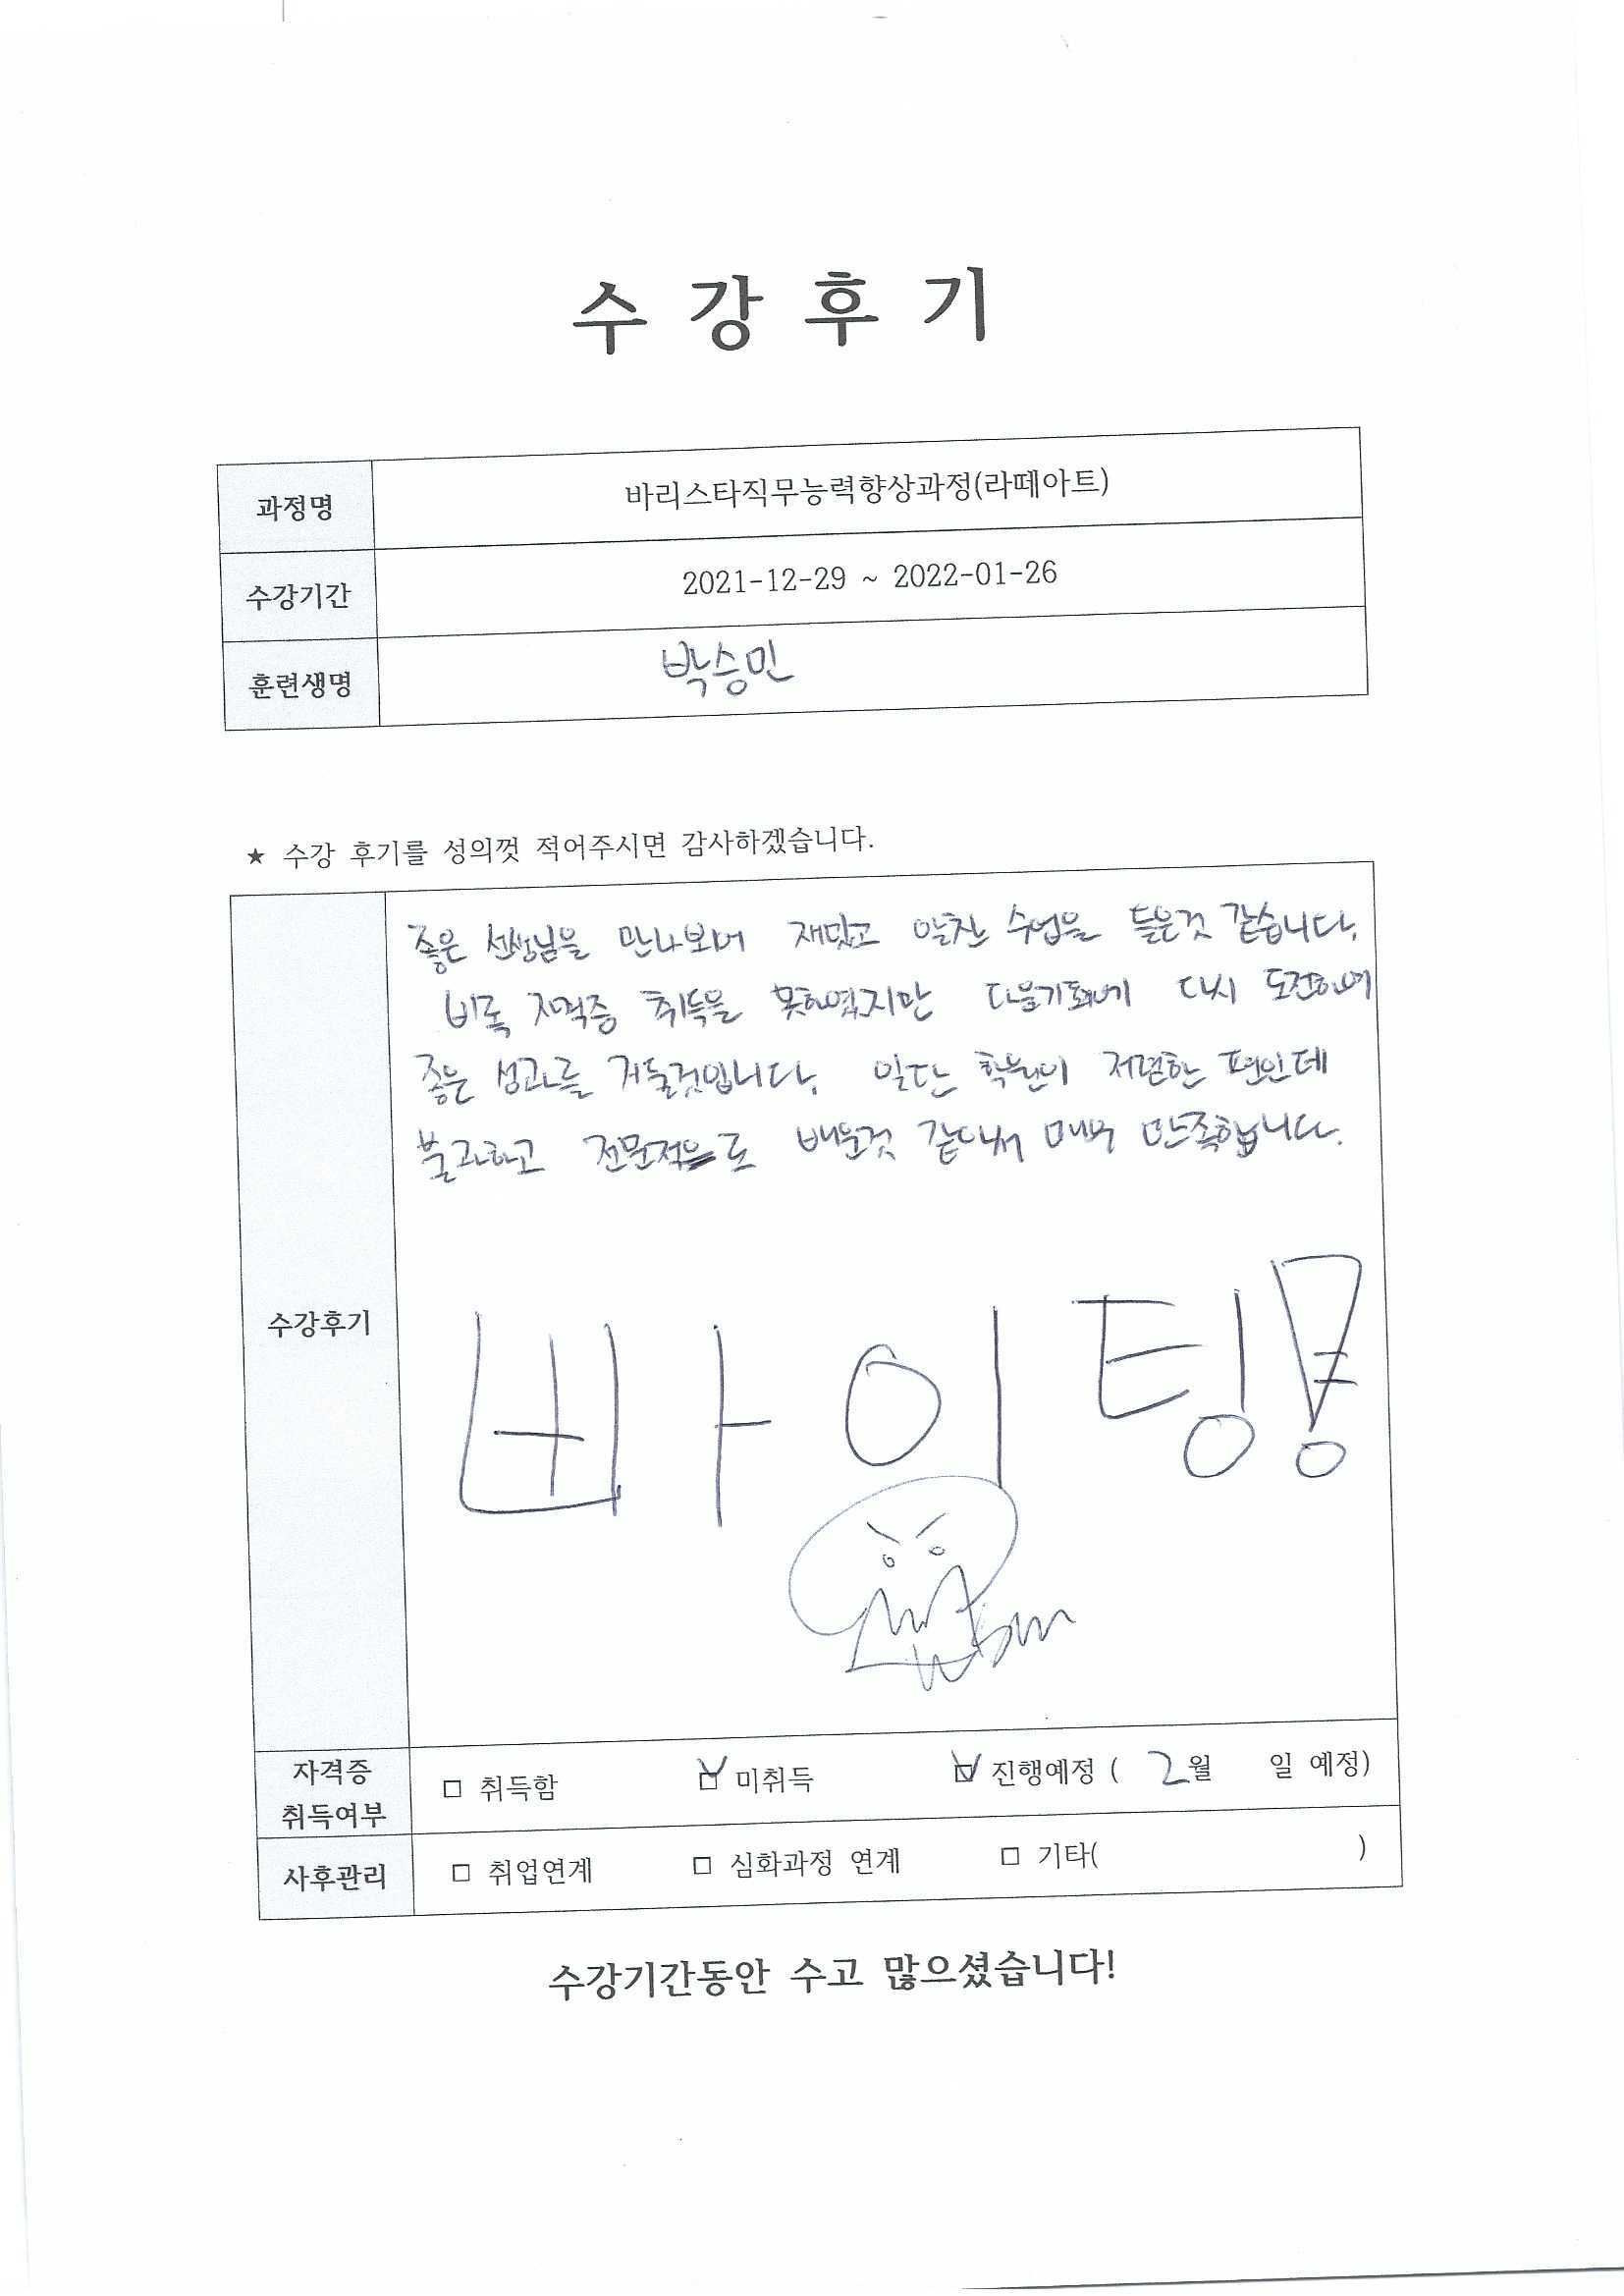 수 강 후 기
과정명 바리스타직무능력향상과정(라떼아트)
수강기간 2021-12-29 ~ 2022-01-26
훈련생명 박승민
★ 수강 후기를 성의껏 적어주시면 감사하겠습니다.
좋은 선생님을 만나보며 재밌고 알찬 수업을 들은것 같습니다.
비록 자격증 취득을 못하였지만 다음기회에 다시 도전하여
좋은 성과를 거둘것입니다. 일단 학원이 저렴한 편인데
불과하고 전문적으로 배운것 같아서 매우 만족합니다.
수강후기
바 이 팅!
자격증
취득여부
□ 취득함 ☑ 미취득 ☑ 진행예정 ( 2월 일 예정)
사후관리 □ 취업연계 □ 심화과정 연계 □ 기타( )
수강기간동안 수고 많으셨습니다!